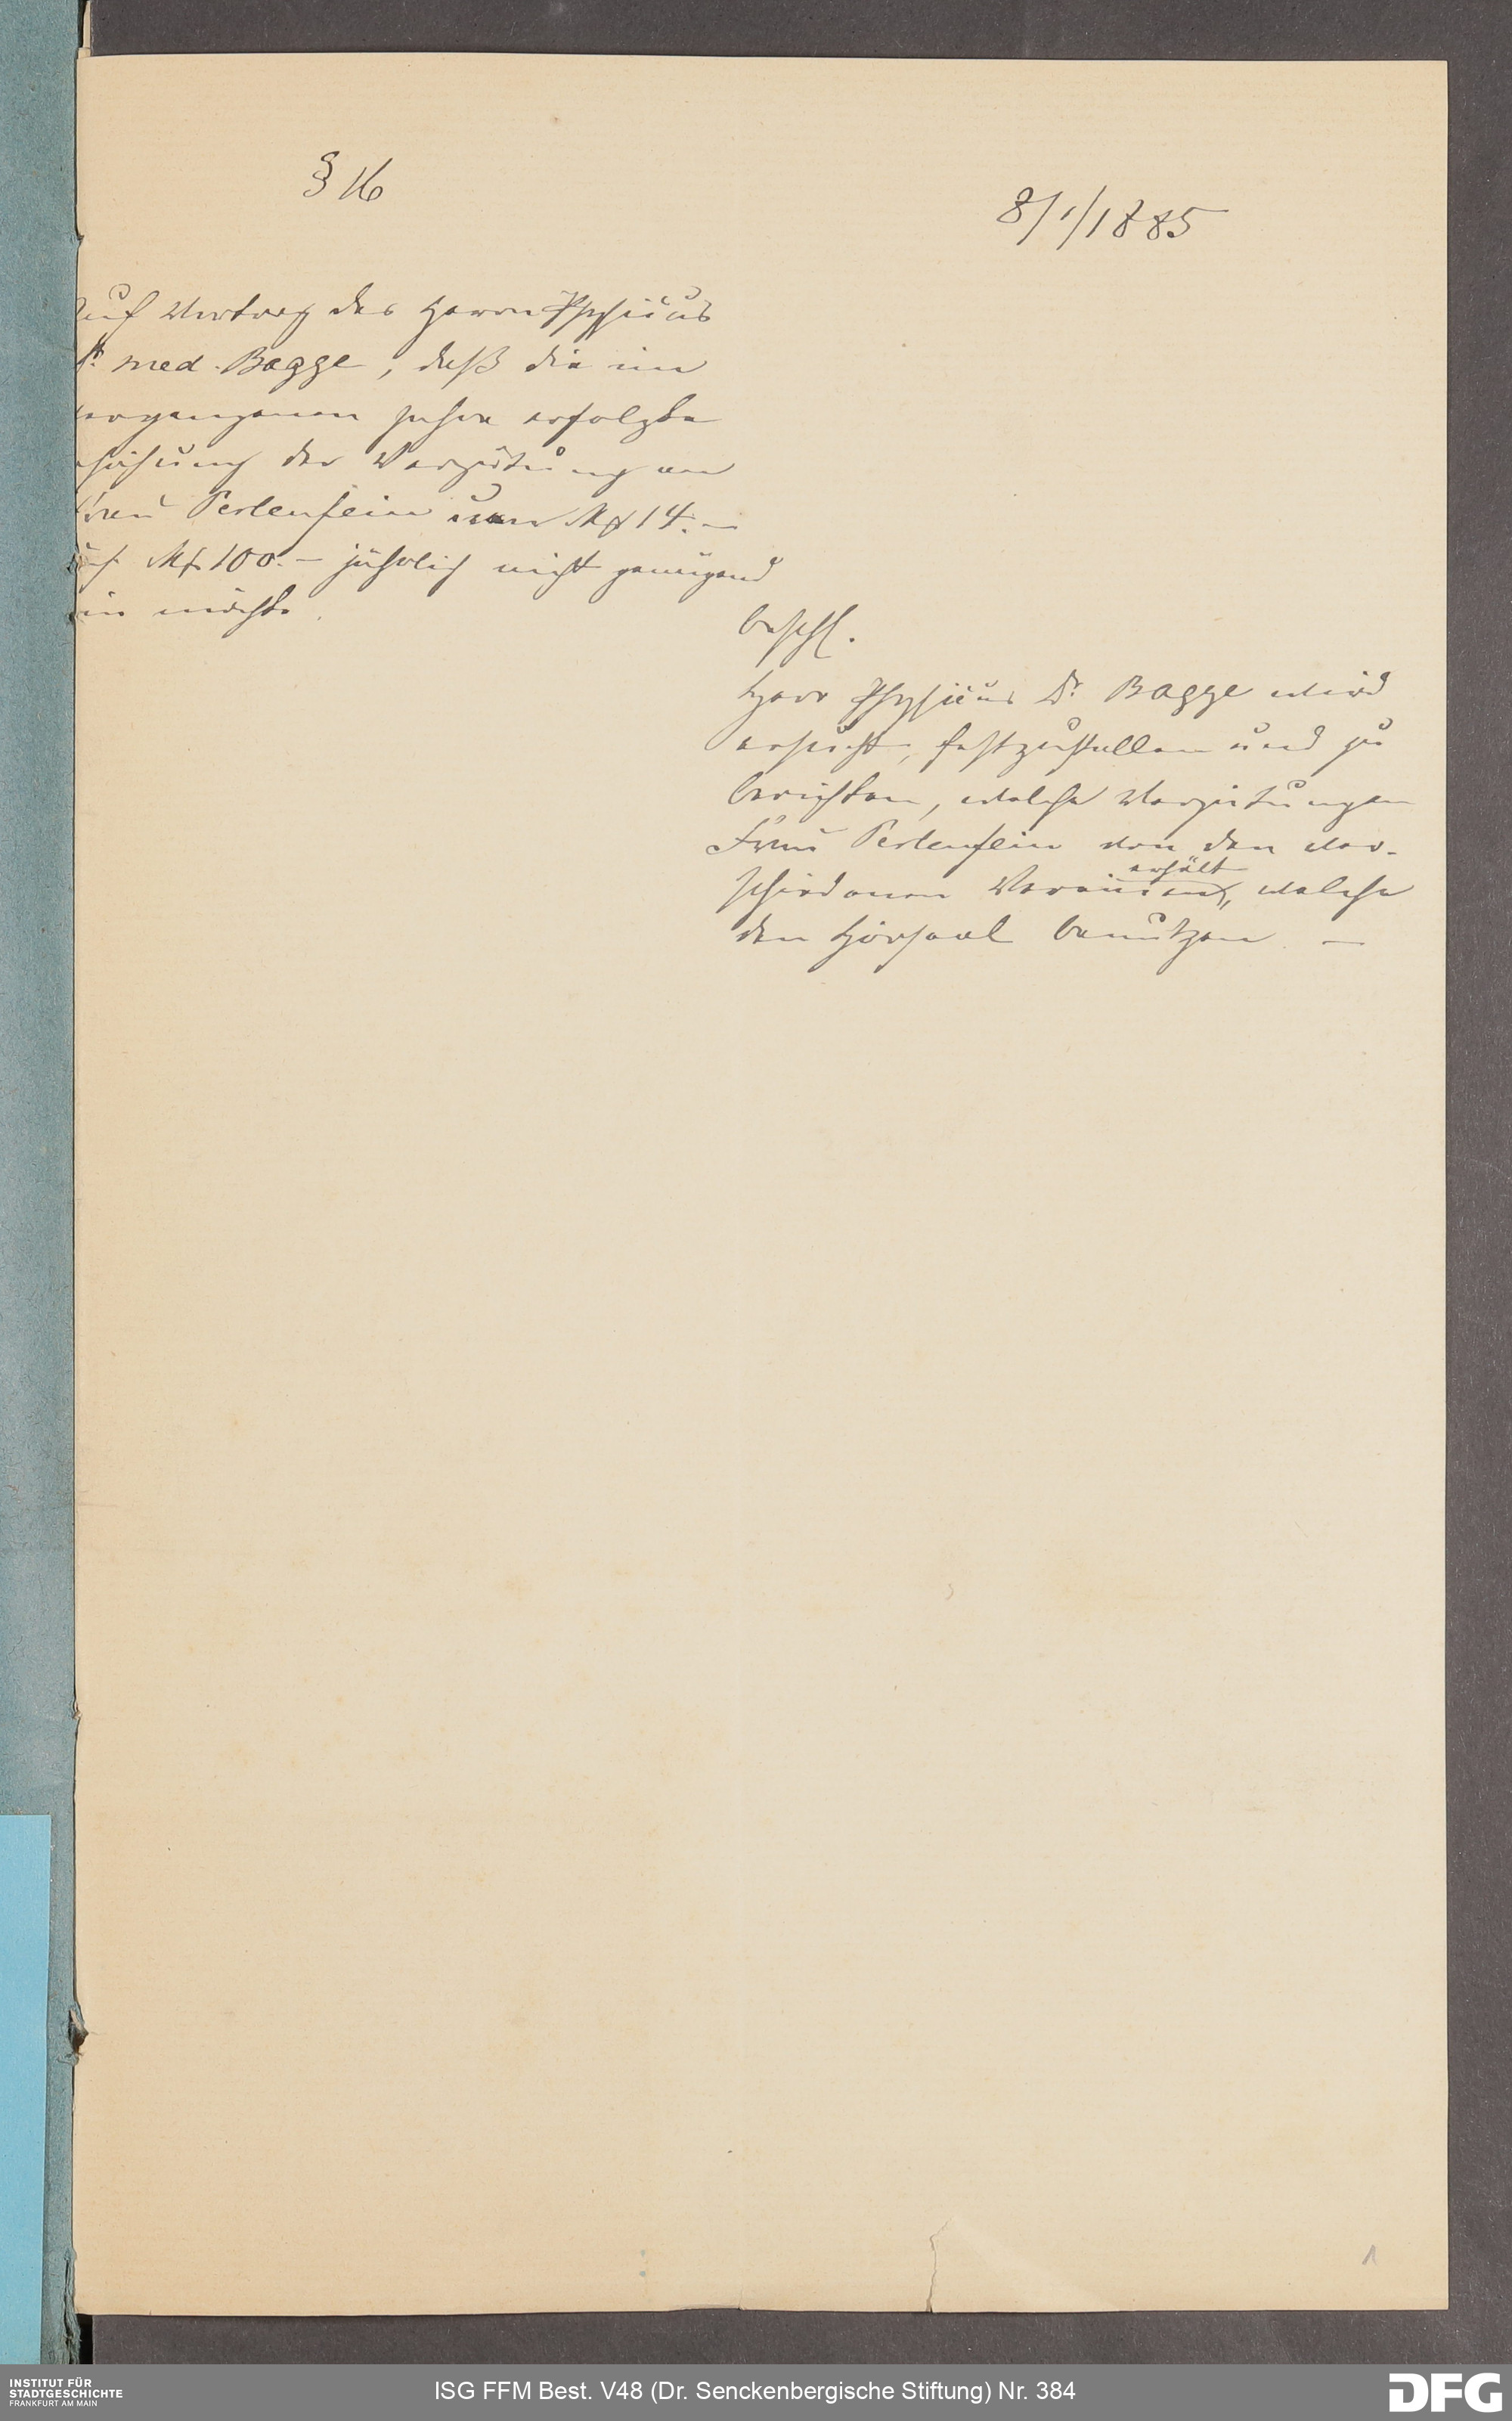 § 16
8/1/1885
Auf Vortrag des Herrn Physicus
Dr. med. Bagge, daß die im
vergangenen Jahre erfolgte
Erhöhung der Vergütung an
Frau Perlenfein von Mk 14.—
auf Mk 100.— jährlich nicht genügend
sein möchte.
beschl.
Herr Physicus Dr. Bagge wird
ersucht, festzustellen und zu
berichten, welche Vergütungen
Frau Perlenfein von den ver-
erhält
schiedenen Vereinen, welche
den Hörsaal benutzen. —
1
INSTITUT FÜR
STADTGESCHICHTE
FRANKFURT AM MAIN
ISG FFM Best. V48 (Dr. Senckenbergische Stiftung) Nr. 384
DFG